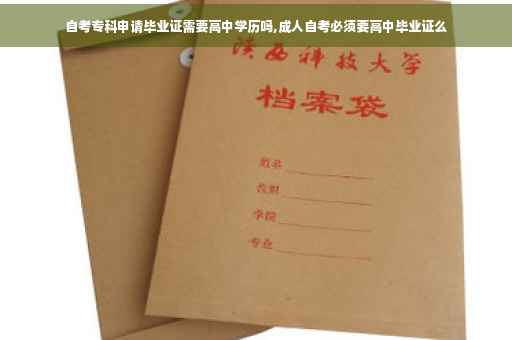 自考专科申请毕业证需要高中学历吗,成人自考必须要高中毕业证么
陕西科技大学
档案袋
姓名
学院
专业